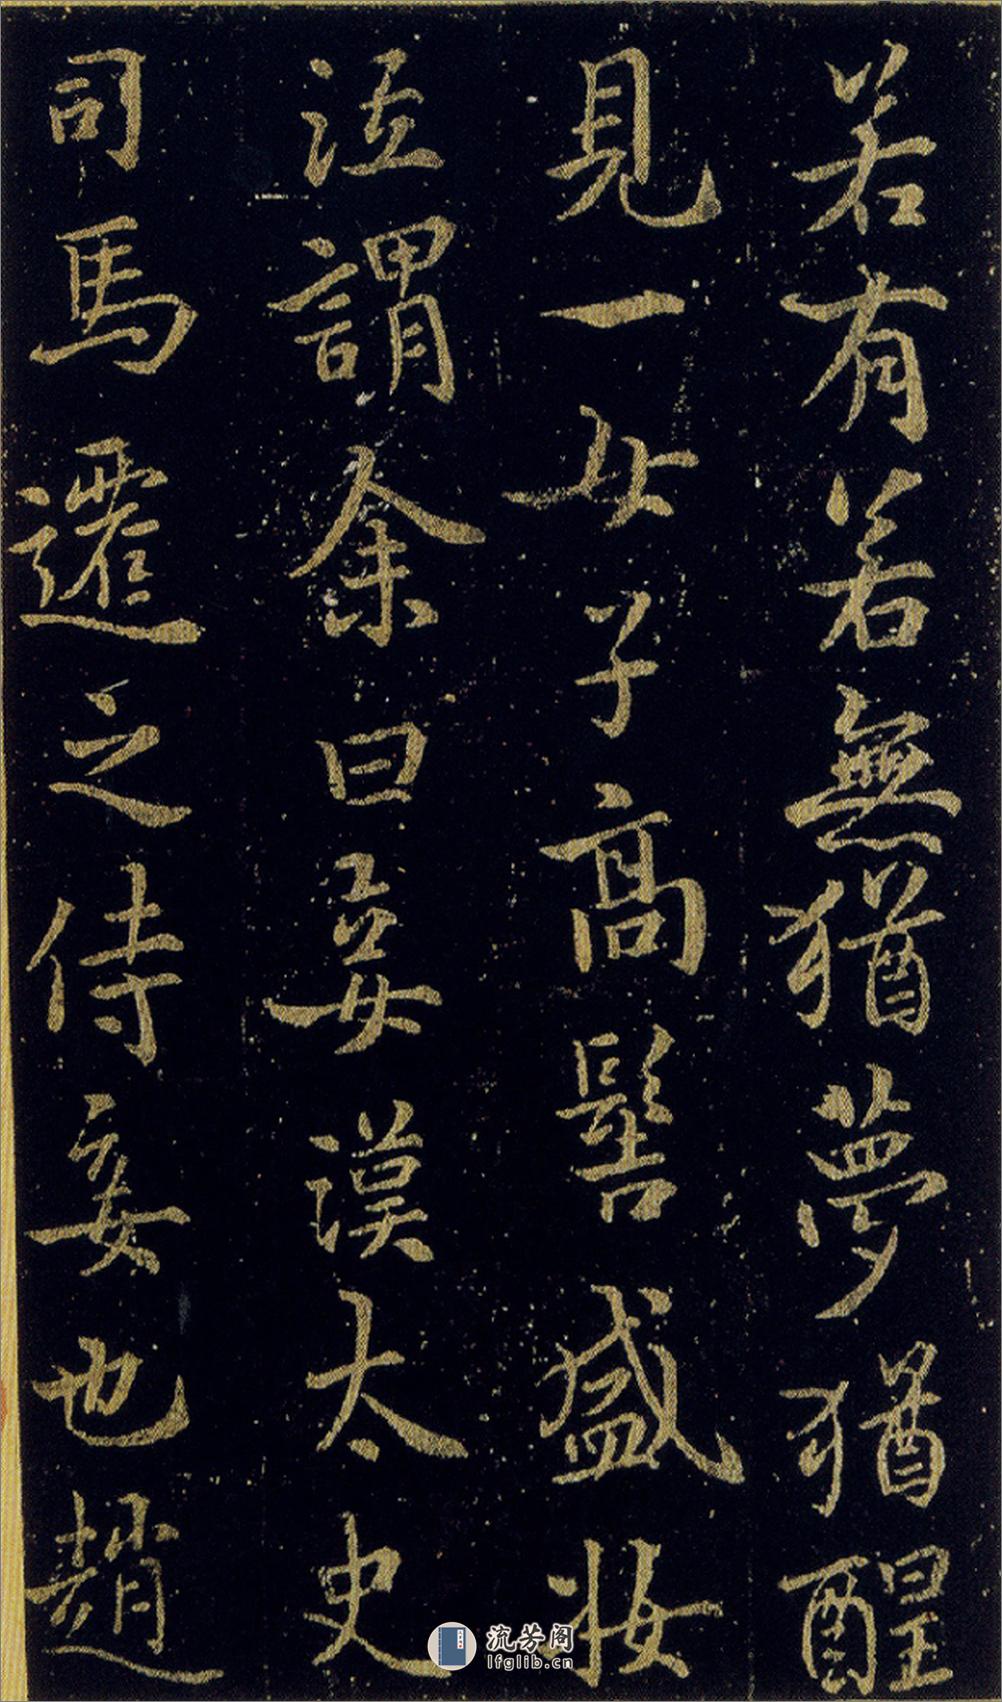 若有若無猶夢猶醒
見一女子高髻盛妝
泣謂余曰妾漢太史
司馬遷之侍妾也趙
流芳阁
lfglib.cn